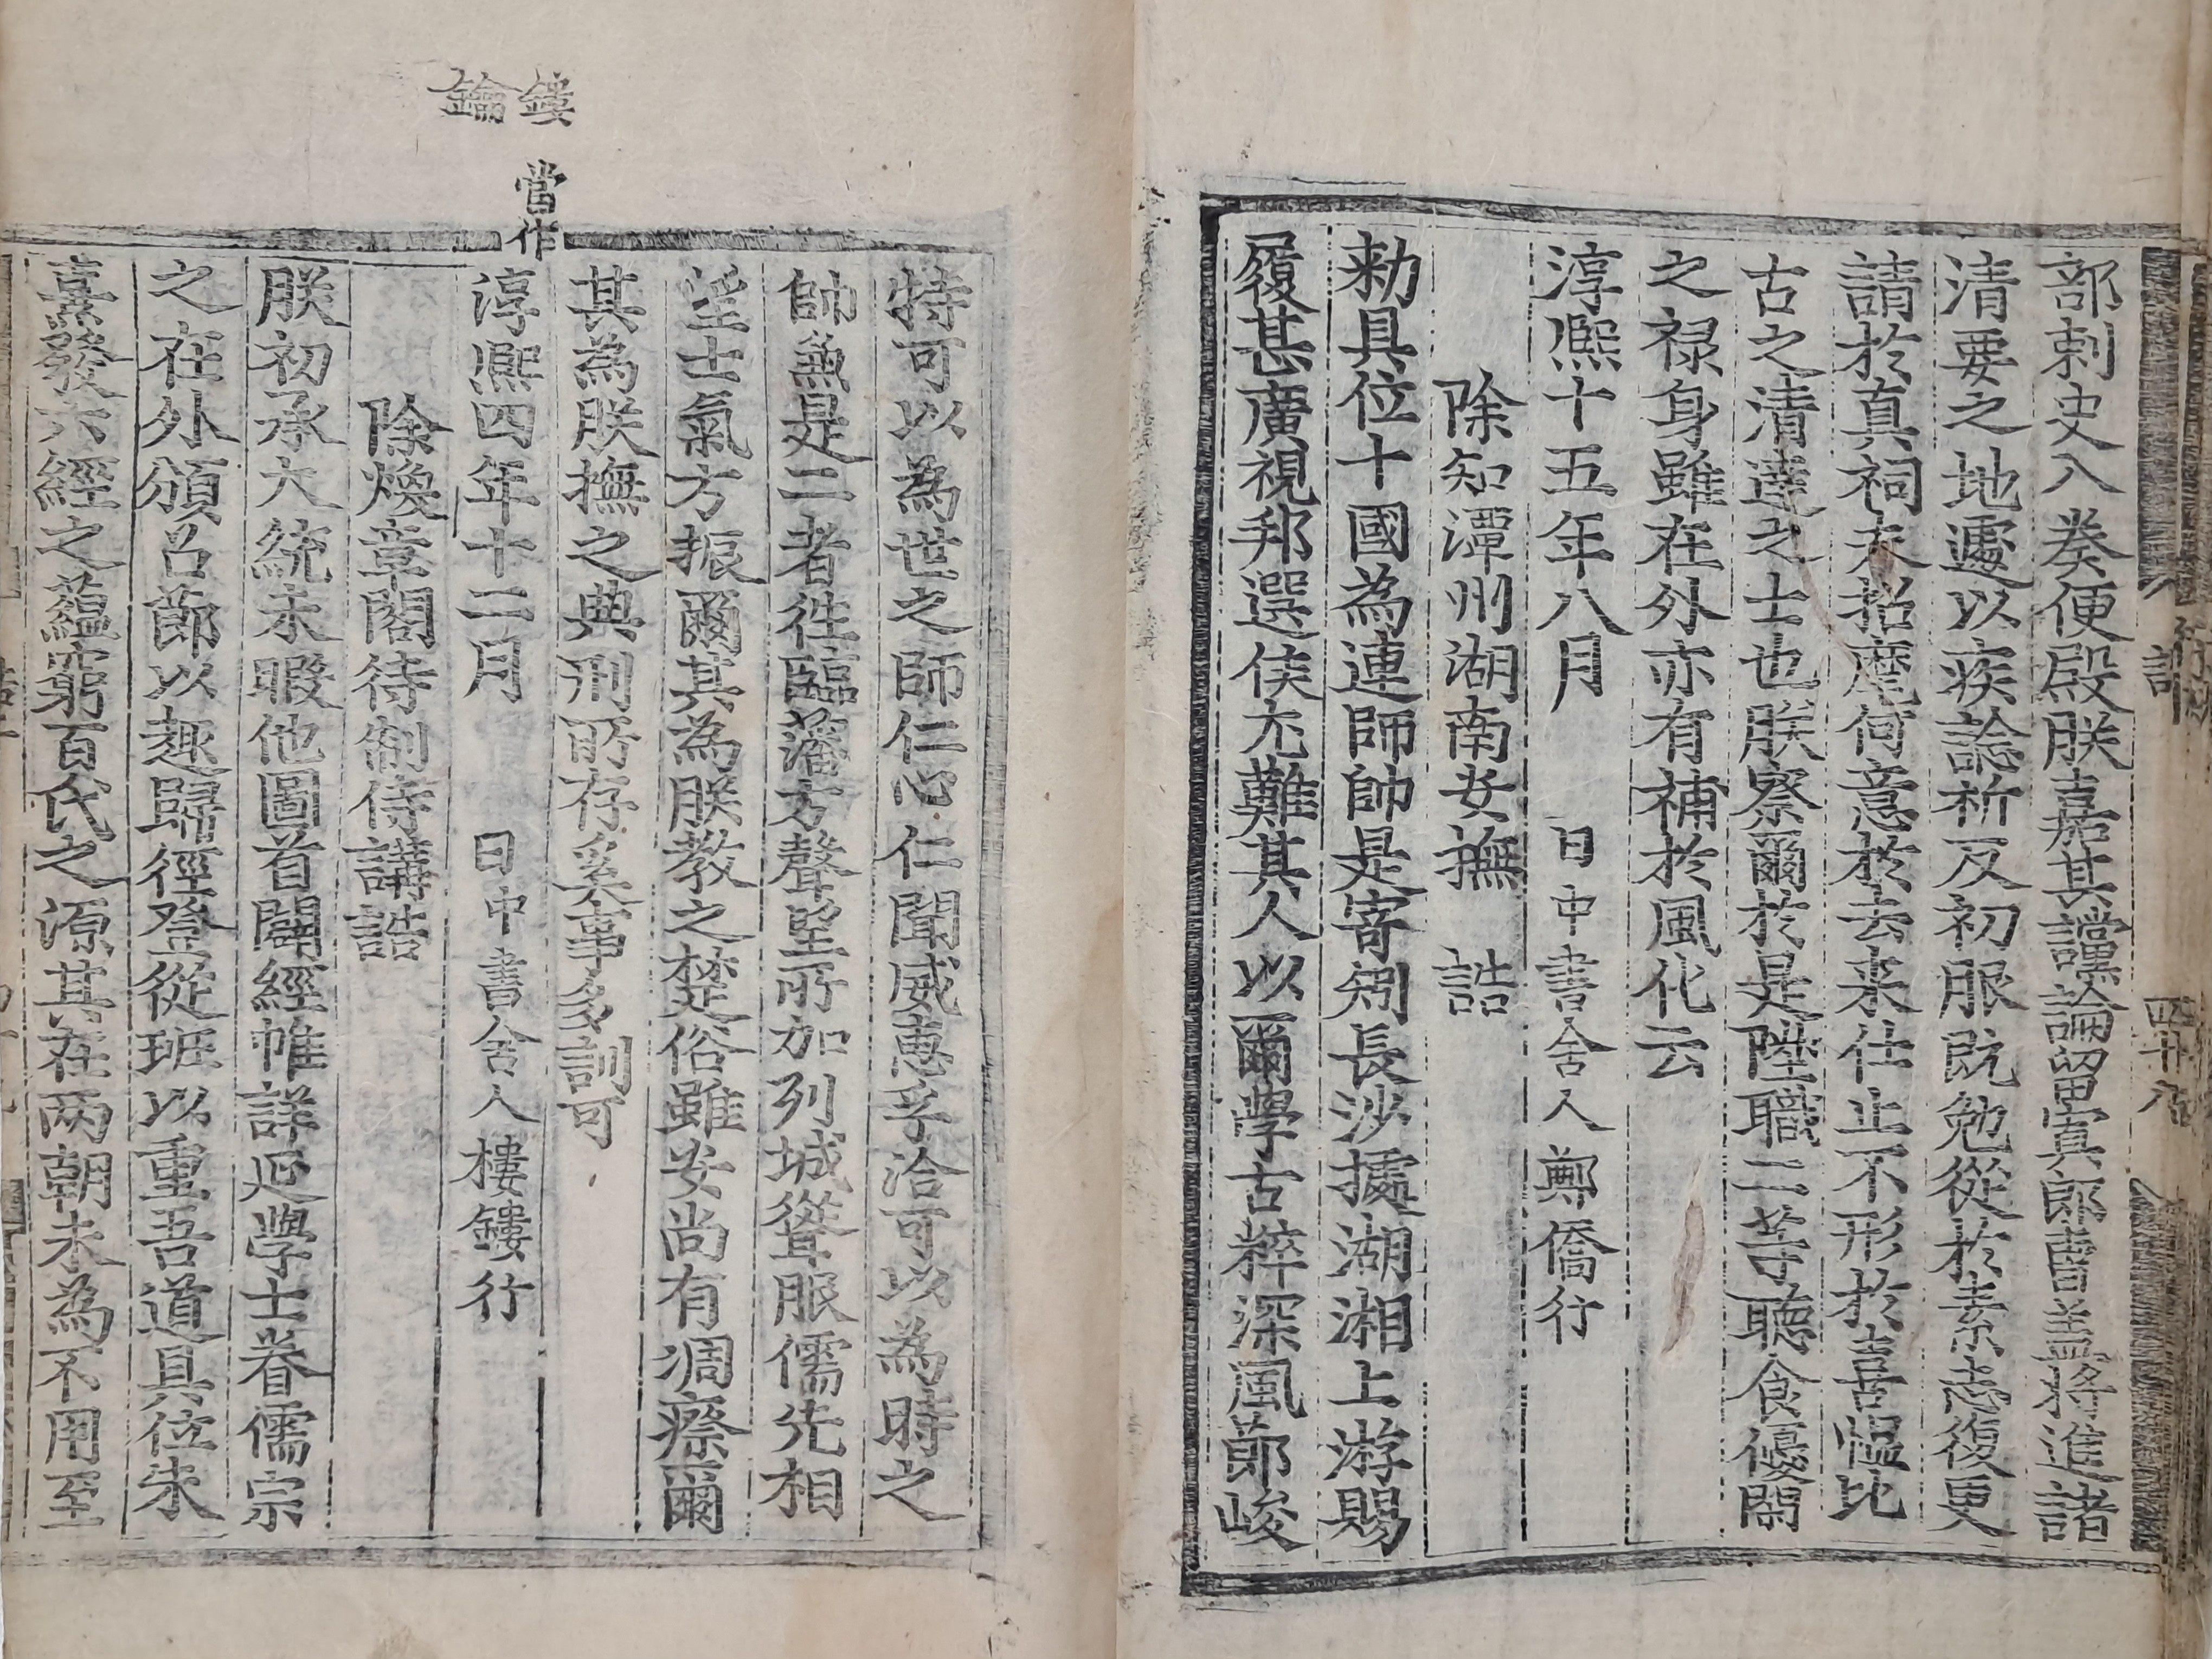 部刺史入奏便殿朕嘉其讜論留寘郎曹盖將進諸
清要之地遽以疾諗析反初服旣勉從於素志復更
請於真祠夫招麾何意於去来仕止不形於喜慍比
古之清達之士也朕察爾於是陞職二等聽食優閑
之禄身雖在外亦有補於風化云
淳熙十五年八月 日中書舍人鄭僑行
除知潭州湖南安撫 誥
勑具位十國為連師帥是寄矧長沙據湖湘上游賜
履甚廣視邦選侯尤難其人以爾學古粹深風節峻
詔
四十八
特可以為世之師仁心仁聞威惠孚洽可以為時之
帥兼是二者徃臨藩方聲望所加列城聳服儒先相
望士氣方振爾其為朕教之楚俗雖安尚有凋瘵爾
其為朕撫之典刑所存奚事多訓可
淳熙四年十二月 日中書舍人樓鏤行
除煥章閣待制侍講誥
朕初承大統未暇他圖首闢經帷詳延學士眷儒宗
之在外頒召節以趣歸徑登從班以重吾道具位朱
熹發六經之蘊窮百氏之源其在两朝未為不用至
鏤
當作
鑰